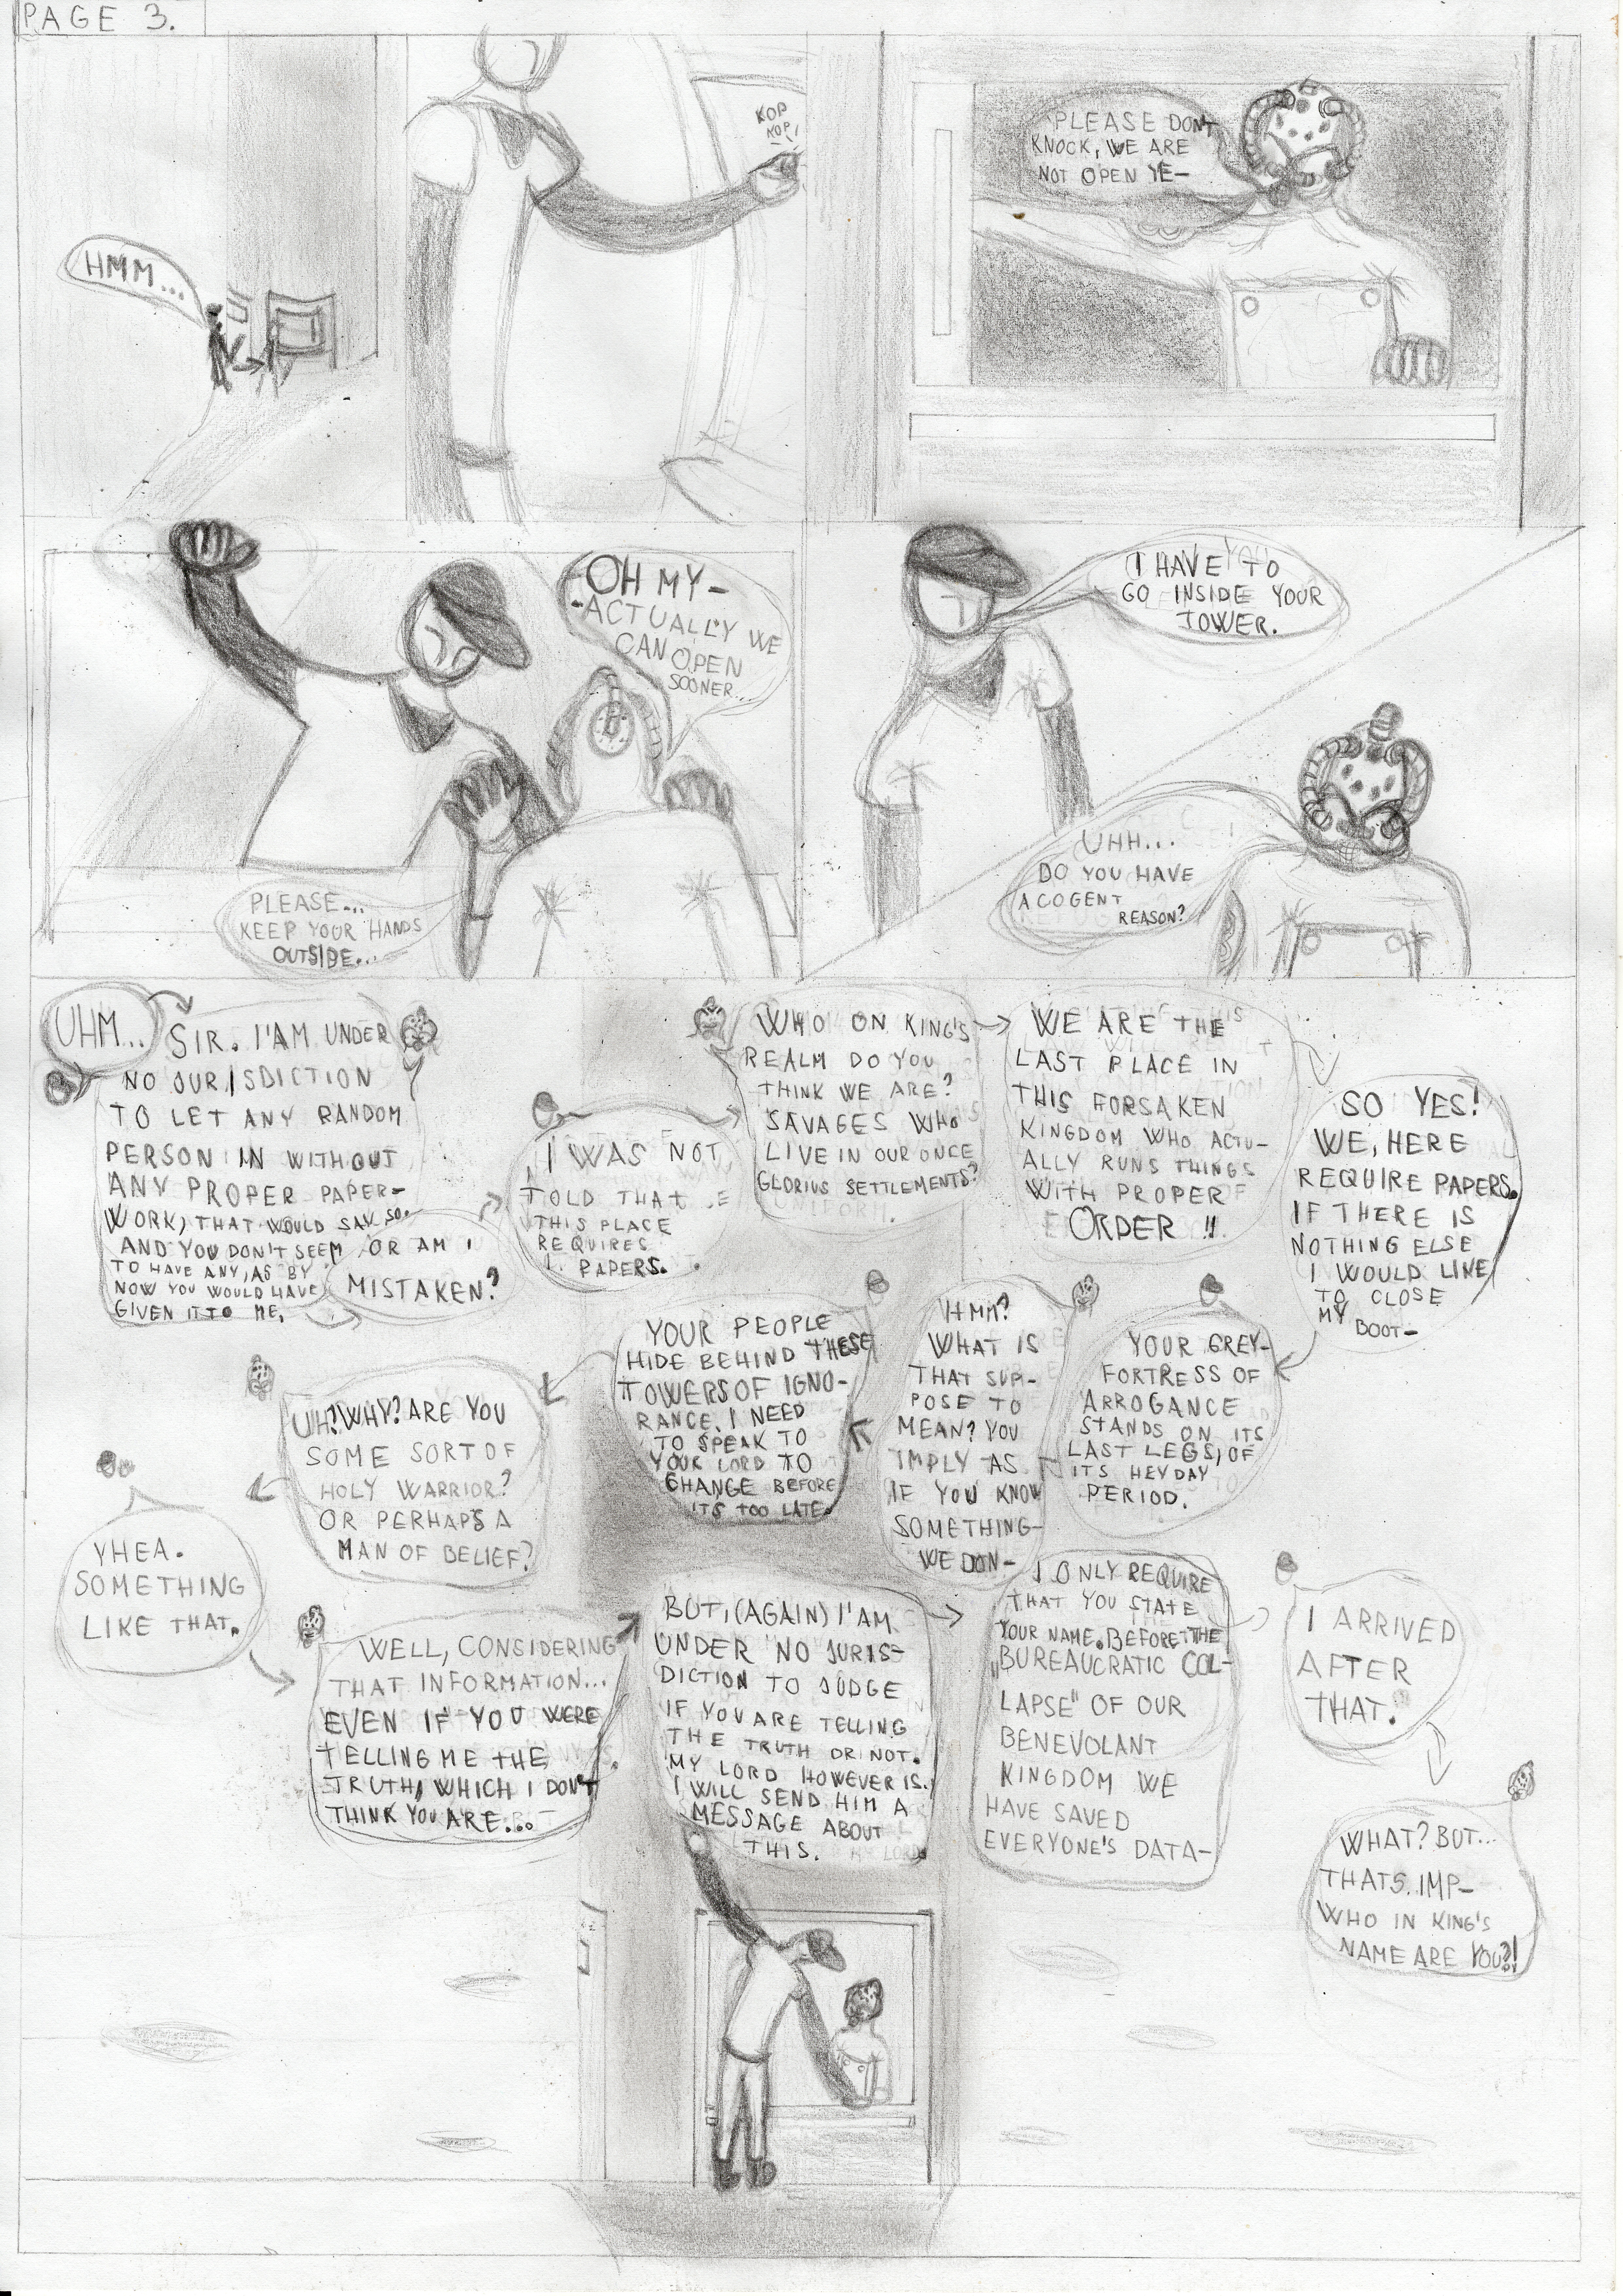 PAGE 3.
HMM...
KOP
KOP!
PLEASE DON'T
KNOCK, WE ARE
NOT OPEN YE-
OH MY-
-ACTUALLY WE
CAN OPEN
SOONER...
PLEASE...
KEEP YOUR HANDS
OUTSIDE...
I HAVE TO
GO INSIDE YOUR
TOWER.
UHH...
DO YOU HAVE
A COGENT
REASON?
UHM...
SIR. I'AM UNDER
NO JURISDICTION
TO LET ANY RANDOM
PERSON IN WITHOUT
ANY PROPER PAPER-
WORK, THAT WOULD SAY SO.
AND YOU DON'T SEEM
TO HAVE ANY, AS BY
NOW YOU WOULD HAVE
GIVEN IT TO ME.
OR AM I
MISTAKEN?
I WAS NOT
TOLD THAT
THIS PLACE
REQUIRES
PAPERS.
WHO ON KING'S
REALM DO YOU
THINK WE ARE?
SAVAGES WHO
LIVE IN OUR ONCE
GLORIUS SETTLEMENTS?
WE ARE THE
LAST PLACE IN
THIS FORSAKEN
KINGDOM WHO ACTU-
ALLY RUNS THINGS
WITH PROPER
ORDER!!
SO YES!
WE, HERE
REQUIRE PAPERS.
IF THERE IS
NOTHING ELSE
I WOULD LIKE
TO CLOSE
MY BOOT-
YOUR GREY-
FORTRESS OF
ARROGANCE
STANDS ON ITS
LAST LEGS, OF
ITS HEYDAY
PERIOD.
HMM?
WHAT IS
THAT SUP-
POSE TO
MEAN? YOU
IMPLY AS
IF YOU KNOW
SOMETHING-
WE DON-
YOUR PEOPLE
HIDE BEHIND THESE
TOWERS OF IGNO-
RANCE. I NEED
TO SPEAK TO
YOUR LORD TO
CHANGE BEFORE
ITS TOO LATE.
UH? WHY? ARE YOU
SOME SORT OF
HOLY WARRIOR?
OR PERHAPS A
MAN OF BELIEF?
YHEA.
SOMETHING
LIKE THAT.
WELL, CONSIDERING
THAT INFORMATION...
EVEN IF YOU WERE
TELLING ME THE
TRUTH, WHICH I DON'T
THINK YOU ARE...
BUT, (AGAIN) I'AM
UNDER NO JURIS-
DICTION TO JUDGE
IF YOU ARE TELLING
THE TRUTH OR NOT.
MY LORD HOWEVER IS.
I WILL SEND HIM A
MESSAGE ABOUT
THIS.
I ONLY REQUIRE
THAT YOU STATE
YOUR NAME. BEFORE THE
"BUREAUCRATIC COL-
LAPSE" OF OUR
BENEVOLANT
KINGDOM WE
HAVE SAVED
EVERYONE'S DATA-
I ARRIVED
AFTER
THAT.
WHAT? BUT...
THATS. IMP-
WHO IN KING'S
NAME ARE YOU?!